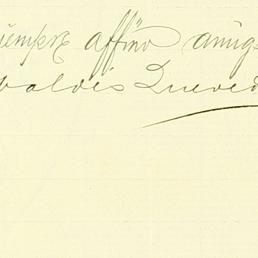 siempre affmo amigo
valdés Quevedo